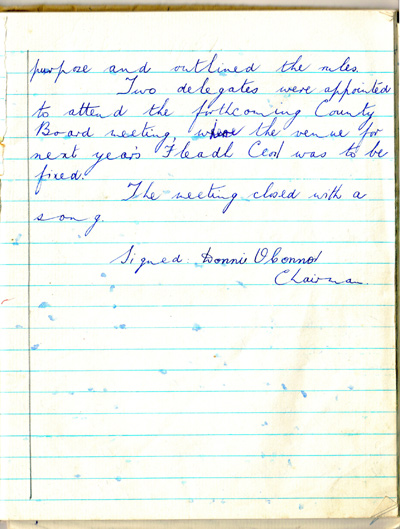 purpose and outlined the rules.
Two delegates were appointed
to attend the forthcoming County
Board meeting, where the venue for
next year's Fleadh Ceol was to be
fixed.
The meeting closed with a
song.
Signed: Donnie O'Connor
Chairman.